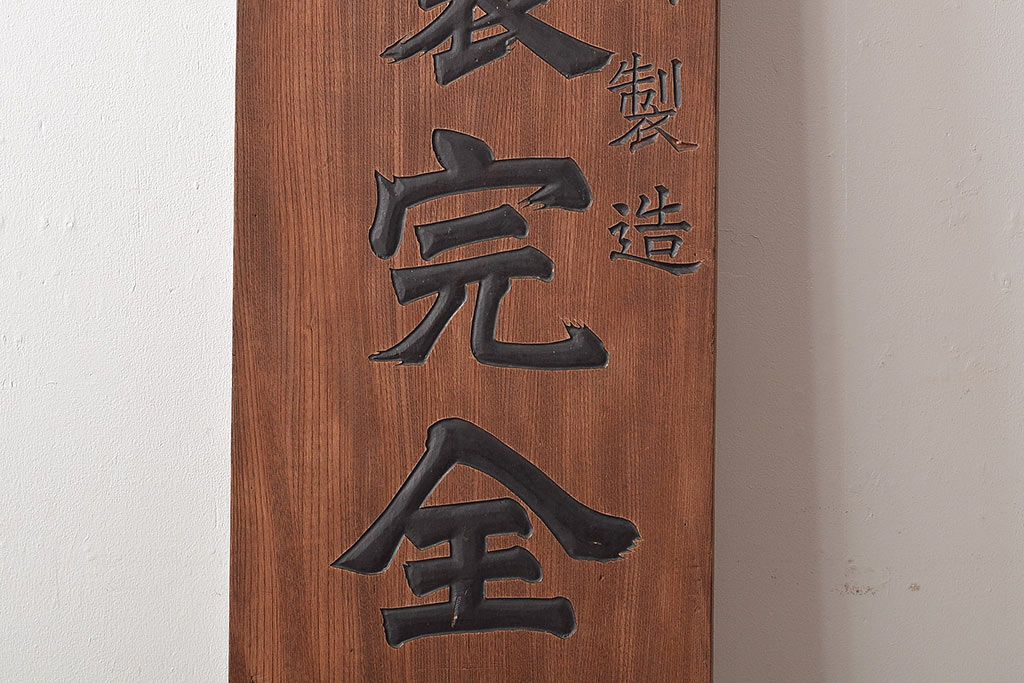 製造
完全